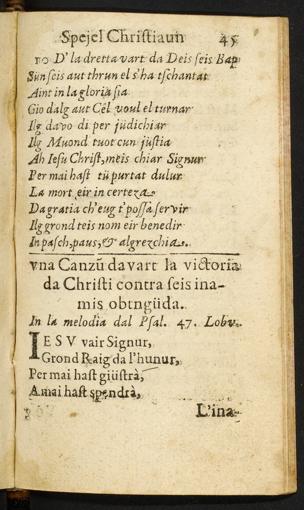 Spejel Christiaun 45
10 D'la dretta vart da Deis seis Bap
Sün seis aut thrun el s'ha tschantat
Aint in la gloria sia
Gio dalg aut Cêl voul el turnar
Ilg davo di per jüdichiar
Ilg Muond tuot cun justia
Ah Iesu Christ, meis chiar Signur
Per mai hast tü purtat dulur
La mort eir in certeza.
Da gratia ch'eug t'possa servir
Ilg grond teis nom eir benedir
In pasch, paus, & algrezchia.
vna Canzū davart la victoria
da Christi contra seis ina-
mis obtngüda.
In la melodia dal Psal. 47. Lobv.
IESV vair Signur,
Grond Raig da l'hunur,
Per mai hast giüstrà,
A mai hast spendrà,
L'ina-